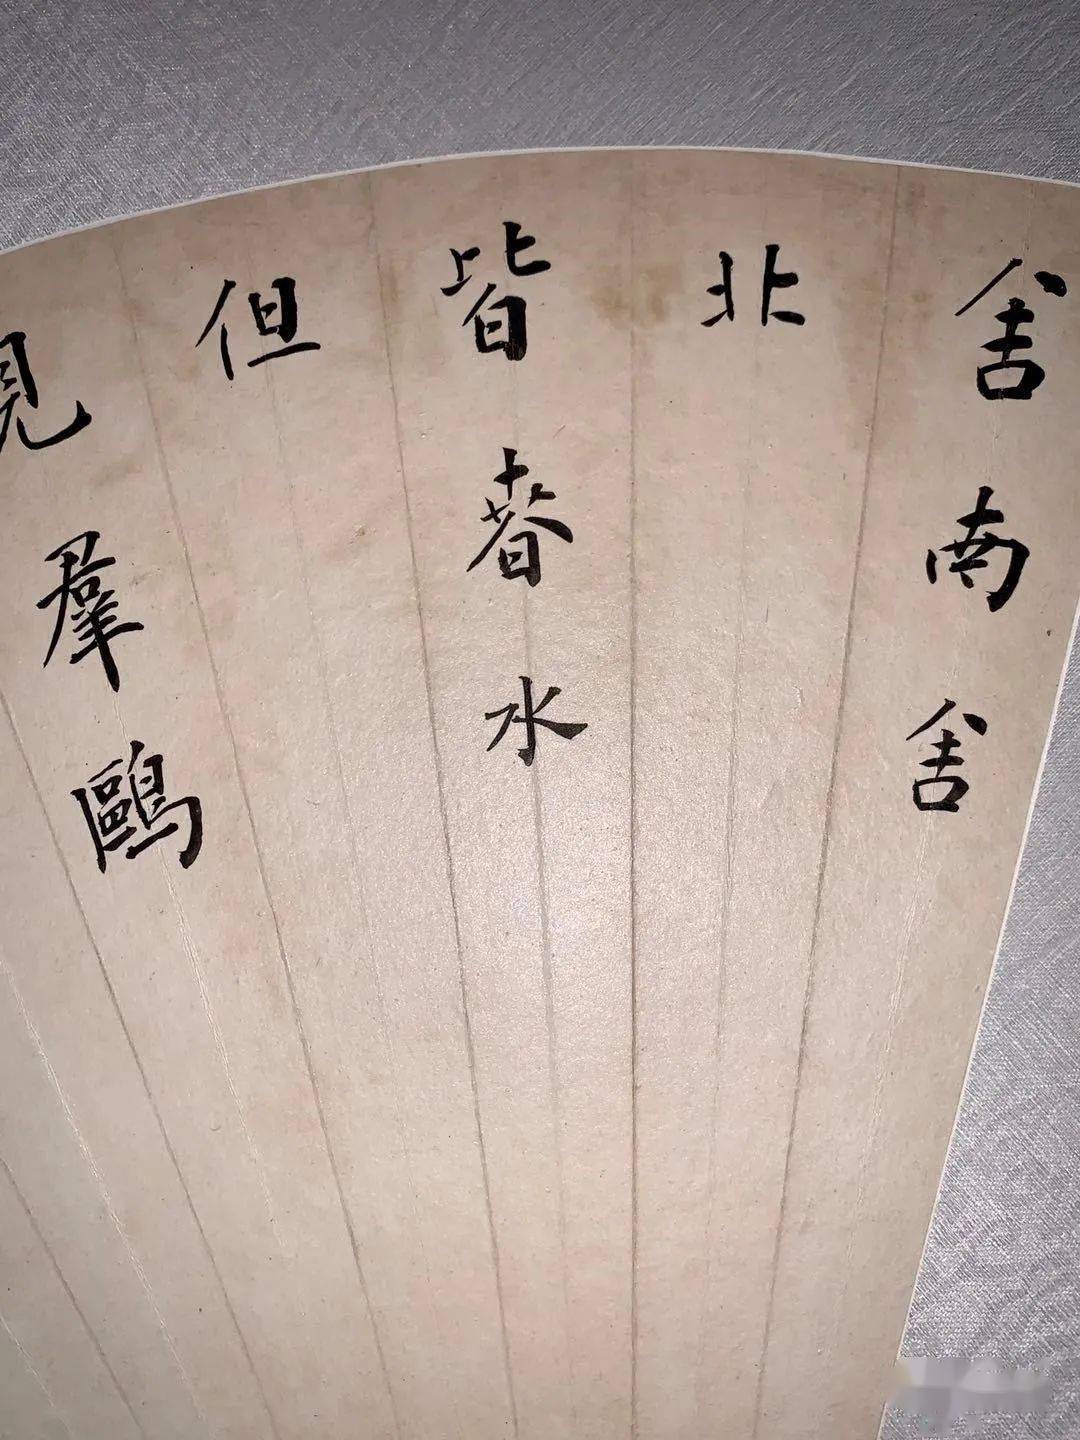 舍南舍
北
皆春水
但
見羣鷗